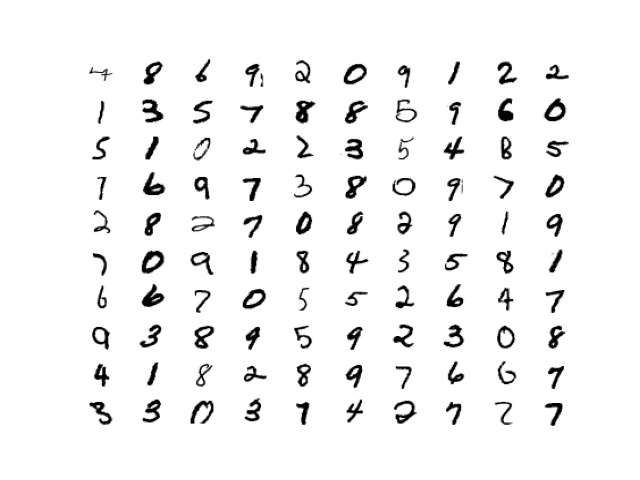 4 8 6 9 2 0 9 1 2 2
1 3 5 7 8 8 5 9 6 0
5 1 0 2 2 3 5 4 8 5
7 6 9 7 3 8 0 9 7 0
2 8 2 7 0 8 2 9 1 9
7 0 9 1 8 4 3 5 8 1
6 6 7 0 5 5 2 6 4 7
9 3 8 9 5 9 2 3 0 8
4 1 8 2 8 9 7 6 6 7
3 3 0 3 7 4 2 7 7